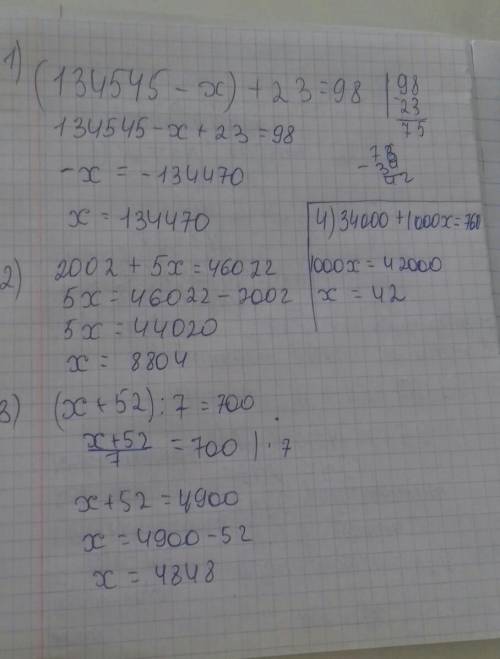 1)
(134545 - x) + 23 = 98
134545 - x + 23 = 98
-x = -134470
x = 134470
98
- 23
75
2)
2002 + 5x = 46022
5x = 46022 - 2002
5x = 44020
x = 8804
4) 34000 + 1000x = 760
1000x = 42000
x = 42
3)
(x + 52) : 7 = 700
x+52
7
= 700 | · 7
x + 52 = 4900
x = 4900 - 52
x = 4848